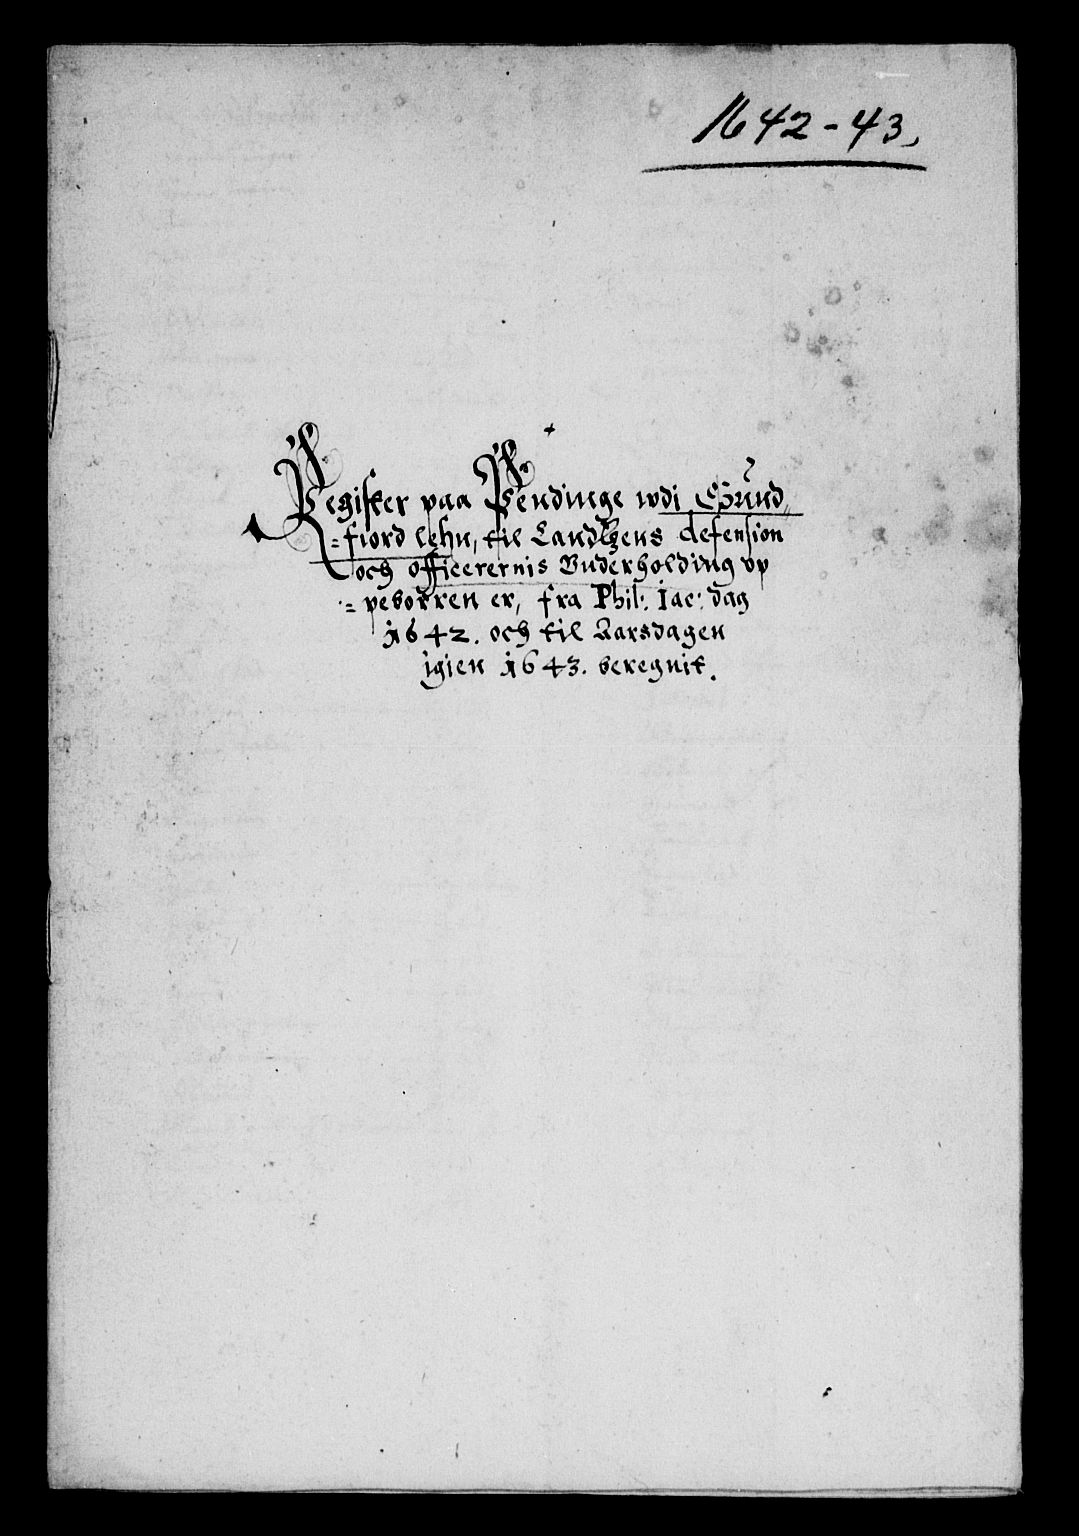 1642-43,
Register paa Pendinge wdi Grund,
=fiord lehn, til Landtzens defension
och officerernis Vnderholding vp
=peborren er, fra Phil: Jac: dag
1642. och til Aarsdagen
igien 1643. beregnit.